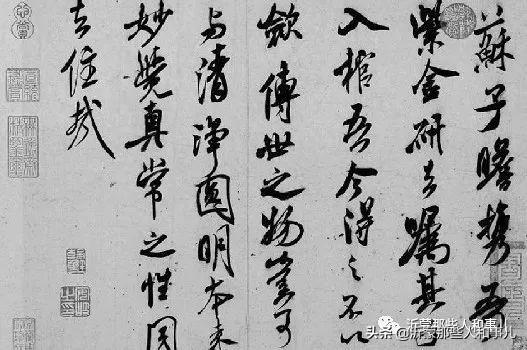 蘇子瞻携吾
紫金研去嘱其子
入棺吾今得之不以
斂傳世之物豈可
与清淨圓明本来
妙覺真常之性同
去住哉
沂蒙那些人和事儿
头条